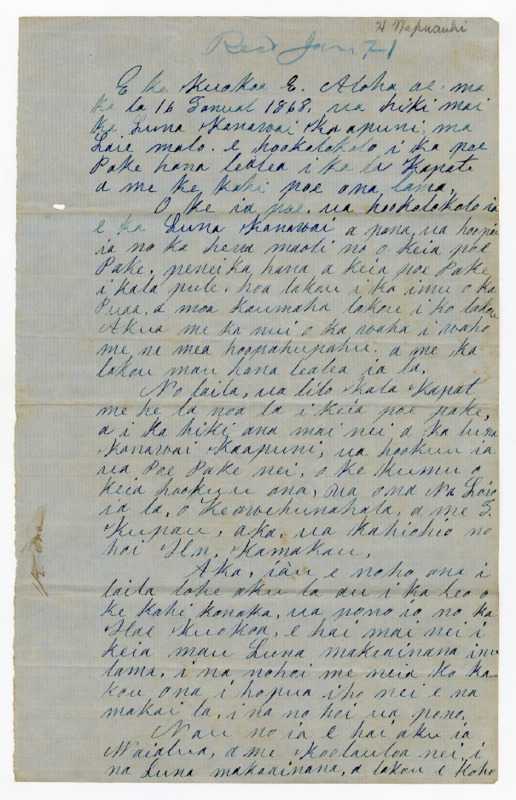 H. Napuauki
Recd Jan 21
E ke Kuokoa E. Aloha oe. ma
ka la 16 Ianuali 1868, ua hiki mai
ka Luna Kanawai Kaapuni, ma
Laie malo. e hookolokolo i ka poe
Pake hana lealea i ka la Kapati
a me ke kahi poe ona lama.
O ke ia poe. ua hookolokolo ia
e ka Luna Kanawai a pana, ua hoopii
ia no ka hewa maoli no o keia poe
Pake, peneika hana a keia poe Pake
i kala pule. hoa lakou i ka imu o ka
Puaa, a moa kaumaha lakou i ko lakou
Akua me ka nui o ka waha i waho
me na mea hoopahupahu. a me ka
lakou mau hana lealea ia la.
No laila, ua lilo kala Kapat
me he la noa la i keia poe pake,
a i ka hiki ana mai nei a ka luna
Kanawai Kaapuni, ua hookuu ia
ua Poe Pake nei, o ke kumu o
keia hookuu ana, ua ona Na Loio
ia la, o Keawehunahala, a me I.
Kupau, aka, ua kahiohio no
hoi Hn. Kamakau.
Aka, iau e noho ana i
laila lohe aku la au i ka leo o
ke kahi kanaka, ua pono io no ka
Hae Kuokoa, e hai mai nei i
keia mau Luna makaainana inu
lama. ina nohoi me neia ko ka-
kou ona i hopua iho nei e na
makai la, ina no hoi ua pono.
Nau no ia e hai aku ia
Waialua, a me Koolauloa nei, i
na Luna makaainana, a lakou e koho